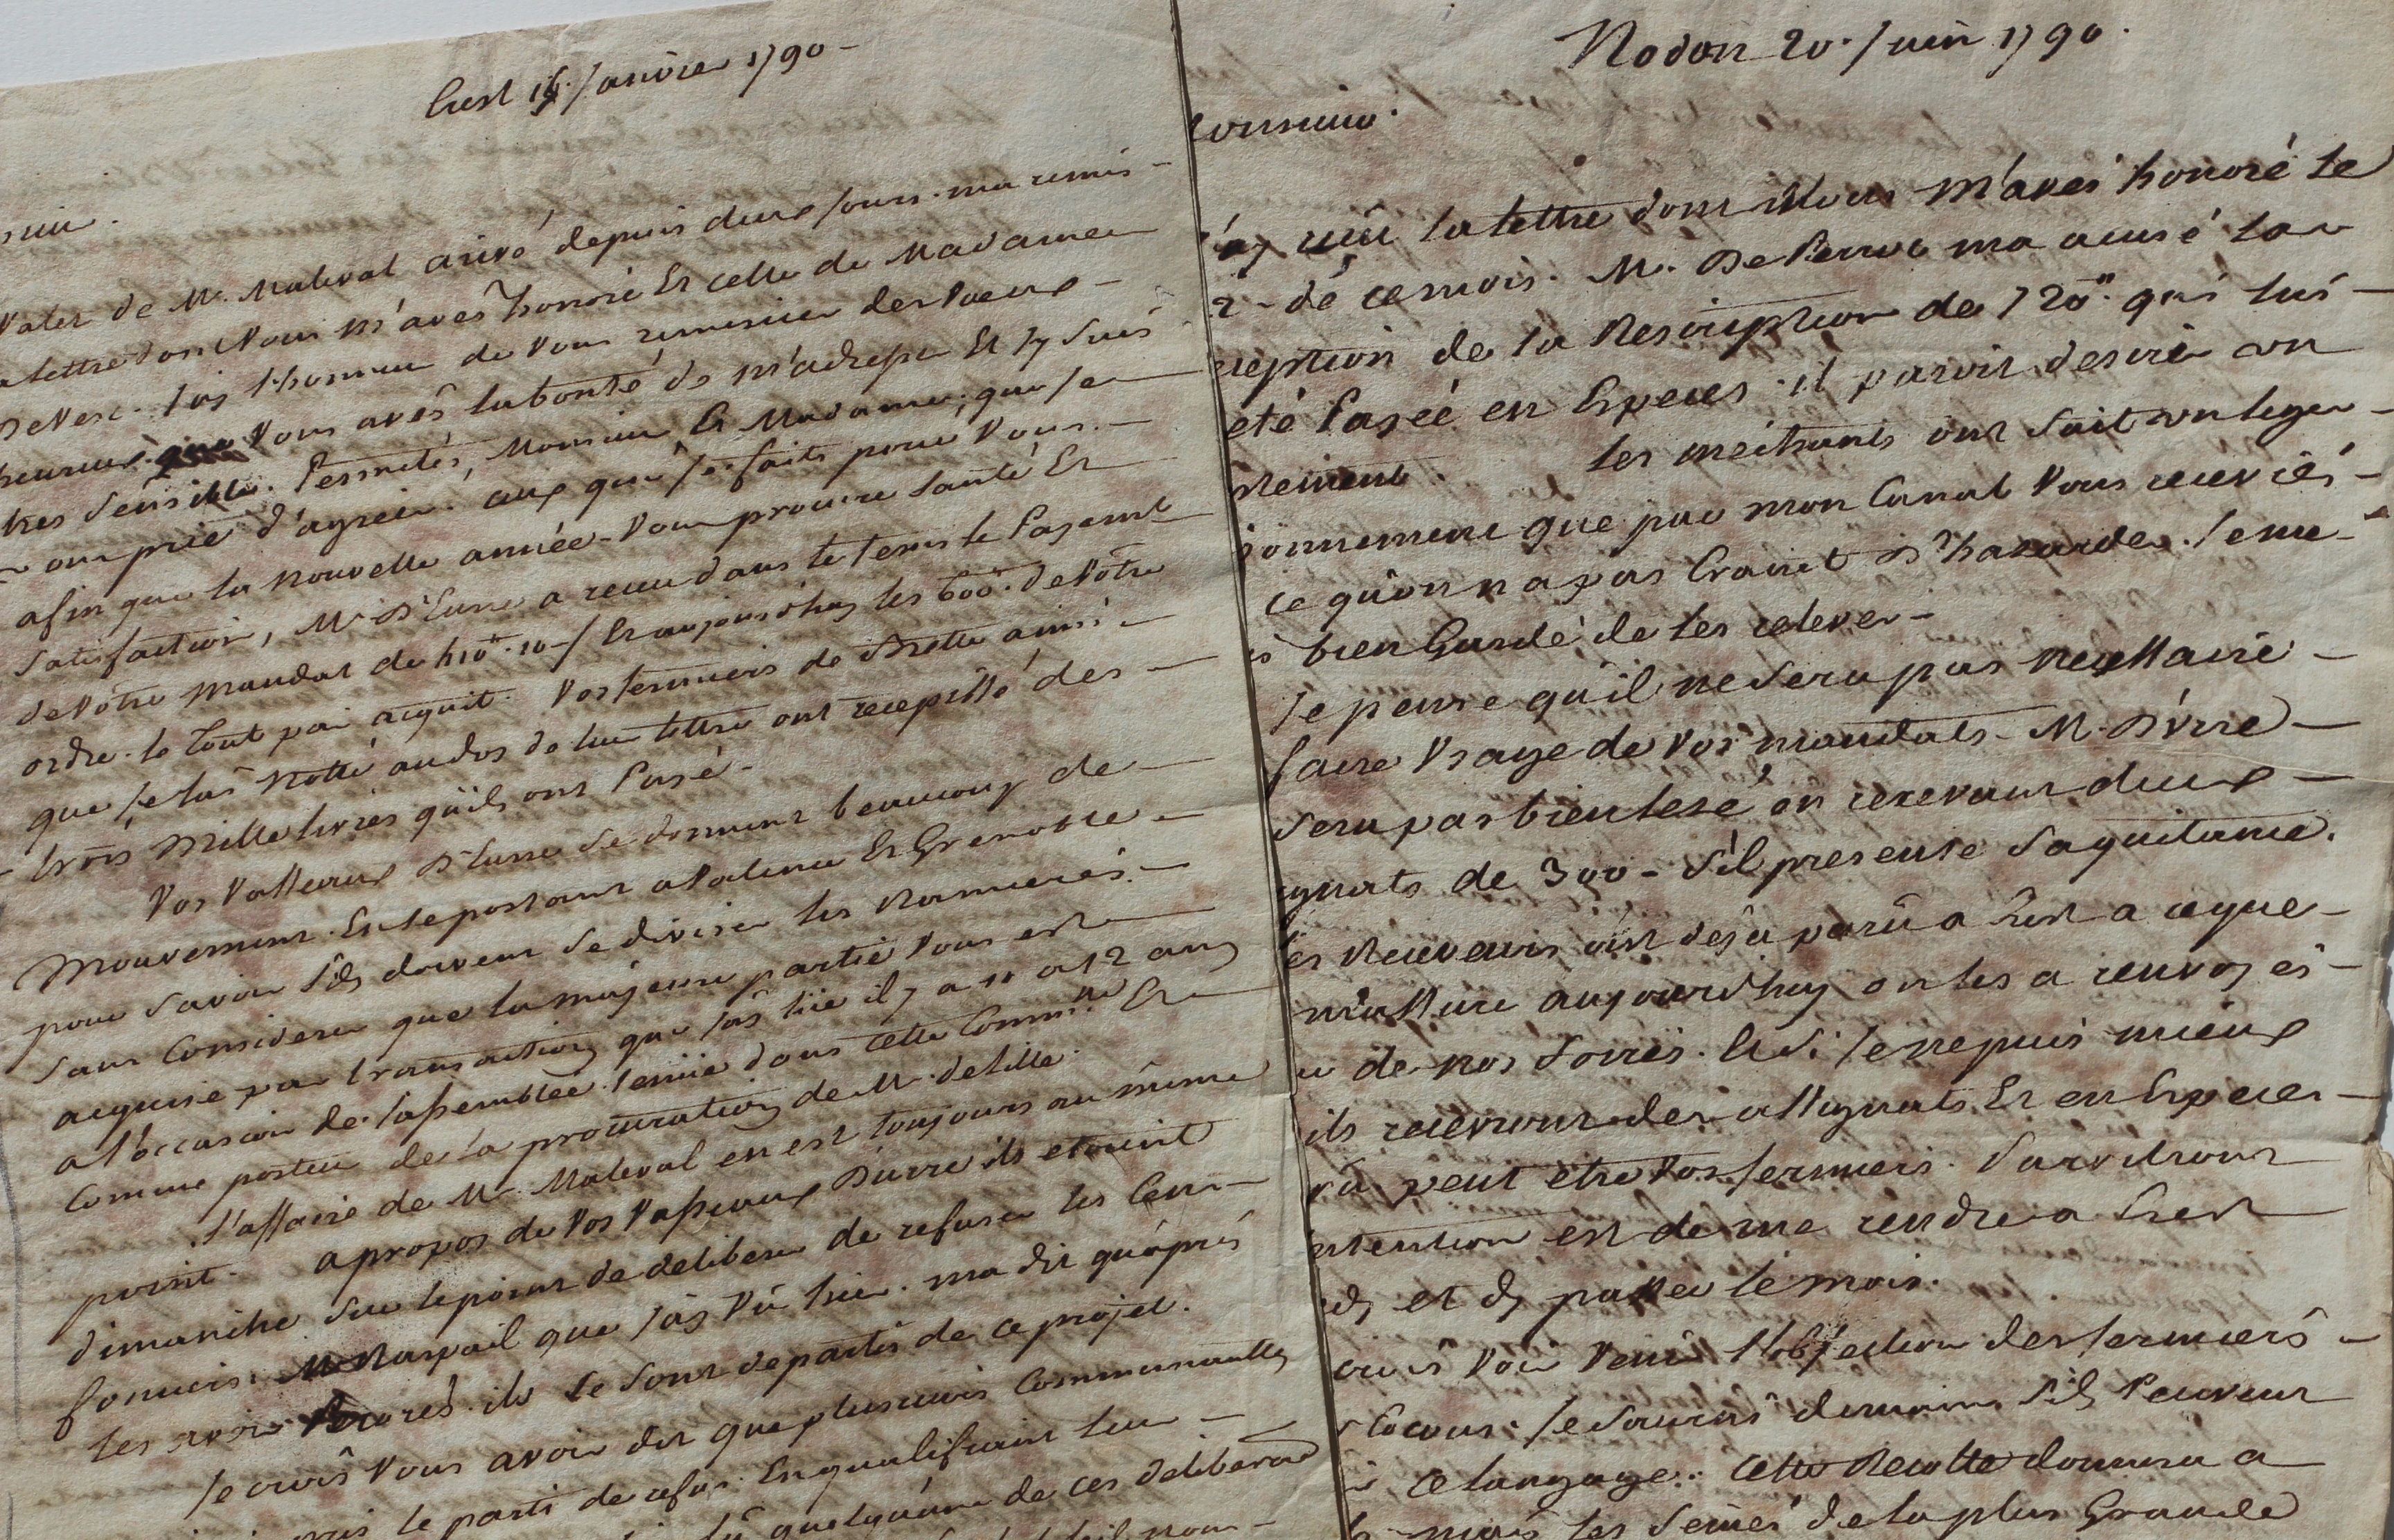 Crest 15. Janvier 1790 -
Valet de Mr. Maleval arivé depuis deux jours. ma remis -
lettre dont Vous m'avés honoré Et celle de Madame
DeVesc. j'ay l'honneur de vous remercier des Vœux -
heureux que Vous avés la bonté de m'adresser Et j'y suis
tres sensible. Permetés, Monsieur Et Madame, que je
prie d'agreer. ceux que je faits pour Vous. -
afin que la nouvelle année Vous procure santé Et
satisfaction, Mr. D'Eurre a receu dans le tems le Payemt
de Votre mandat de 410ll. 10 s Et aujourd'huy les 600ll. de Votre
ordre. le Tout par acquit. Vos fermiers de ainsi -
que je l'ai notté au dos de leur lettre ont recepissé des -
trois mille livres qu'ils ont Payé -
Vos Vasseaux D'Eurre se donnent beaucoup de
mouvement. En se portant a Valence Et Grenoble -
pour savoir s'ils doivent se diviser les Ramieres. -
sans Considerer que la majeure partie Vous est
acquise par transaction que j'ay liée il y a 11 a 12 ans
a l'occasion de l'assemblée tenüe dans cette Commté Et
Comme porteur de la procuration de M. deLille.
l'affaire de Mr. Maleval en est toujours au même
point. apropos de Vos Vasseaux D'Eurre ils etoient
dimanche sur le point de deliberer de refuser les Cens -
fonciers. Mr Raspail que j'ay Vû hier. ma dit qu'après
les avoir ils se sont departis de ce projet.
Je crois Vous avoir dit que plusieurs Communautés
pris le parti de refus. En qualifiant leur -
quelqu'une de ces deliberaons
Nodon 20. Juin 1790.
Monsieur.
J'ay reçû la lettre dont Vous m'avés honoré le
2 - de ce mois. M. De Perrot ma acusé la
reception de la Rescription de 720ll. qui lui -
été Payée en Especes. il paroit desirer un
Les mechants ont fait un leger -
que par mon Canal Vous receviés -
ce qu'on n a pas Craint D'hazarder. Je me -
bien Gardé de les relever -
Je pense qu'il ne sera pas necessaire -
faire Usage de Vos mandats - M. D'Vrre -
sera pas bien lesé en recevant deux -
assignats de 300 - s'il presente sa quitance.
les Receveurs ont déja parû a Crest a ce que -
m'assure aujourd'huy on les a renvoyés -
de nos Soirés. Et si Je ne puis mieux
ils recevront des assignats Et en Especes -
peut etre Vos fermiers. 
intention est de me rendre a Crest
et d'y passer le mois.
Voir Venir l'objection des fermiers -
Je saurai demain s'ils Peuvent
ce langage. Cette Recolte donnera a
mais les de la plus Grande